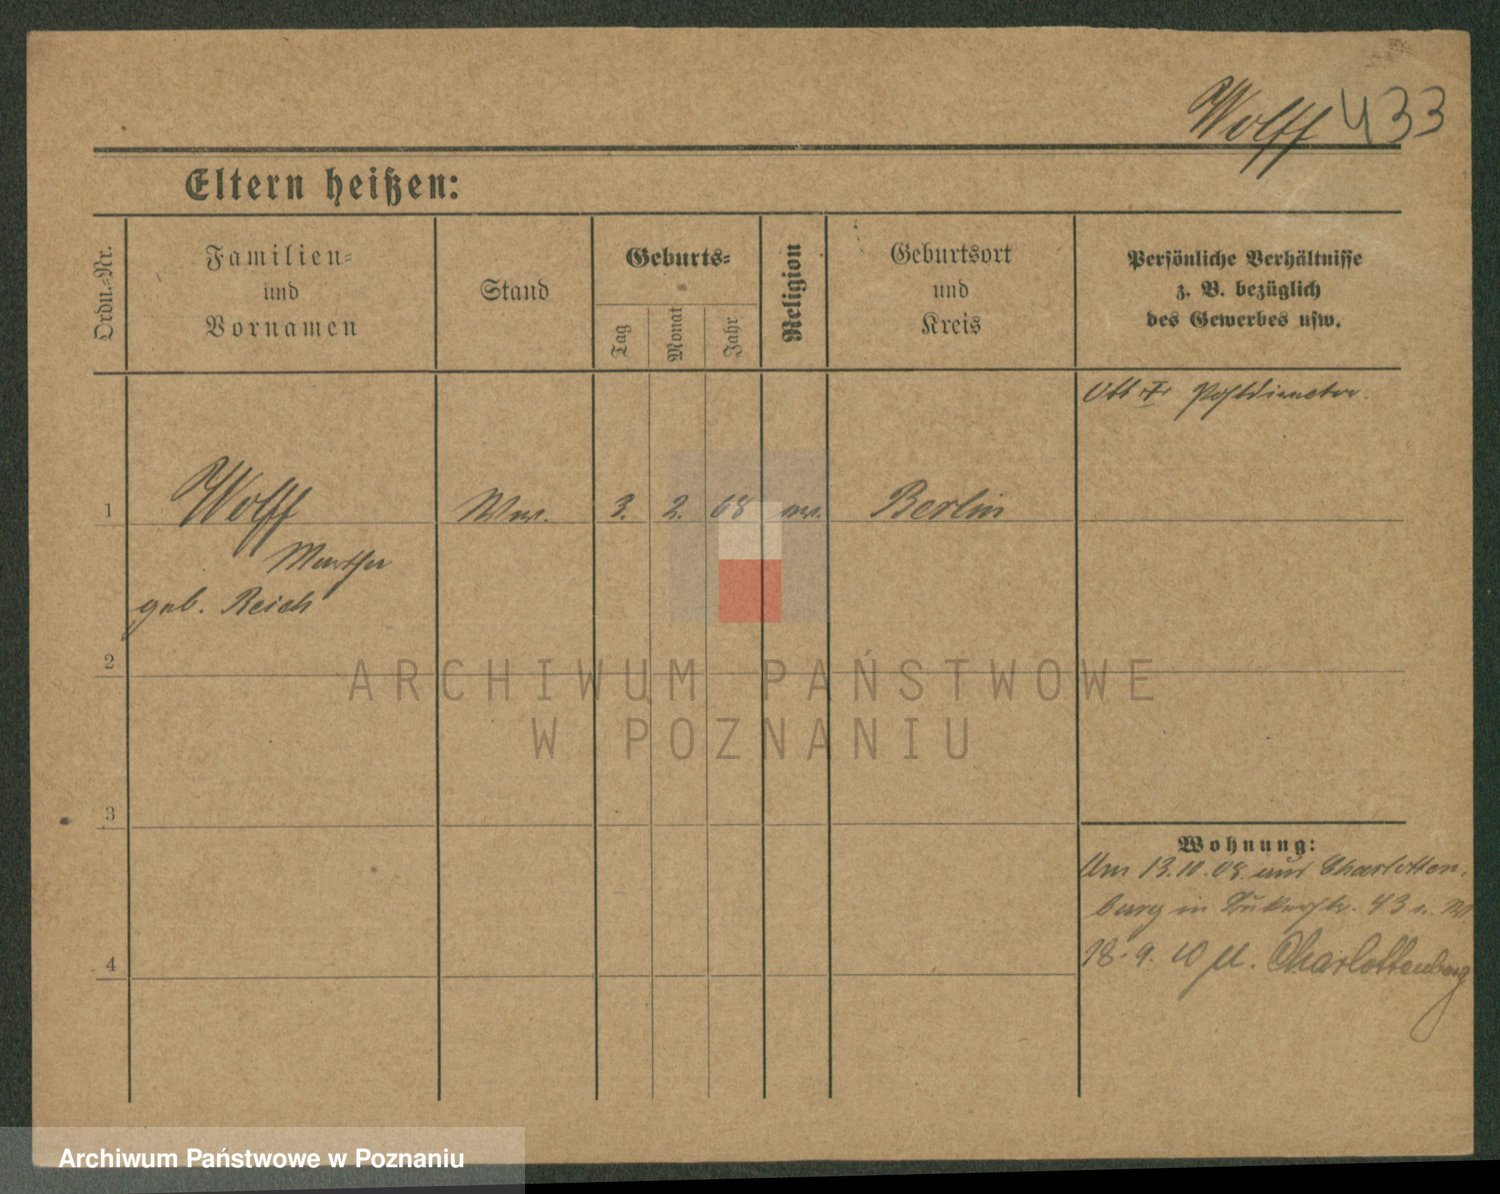 Wolff 433
Eltern heißen:
Ordn.-Nr.
Familien-
und
Vornamen
Stand
Geburts-
Tag
Monat
Jahr
Religion
Geburtsort
und
Kreis
Persönliche Verhältnisse
z. B. bezüglich
des Gewerbes usw.
Postdirektor.
1
Wolff
Martha
geb. Reich
Ww.
3.
2.
68
ev.
Berlin
2
3
4
Wohnung:
Am 13.10.08. aus Charlotten-
burg in
18.9.10 Charlottenburg
ARCHIWUM PAŃSTWOWE
W POZNANIU
Archiwum Państwowe w Poznaniu